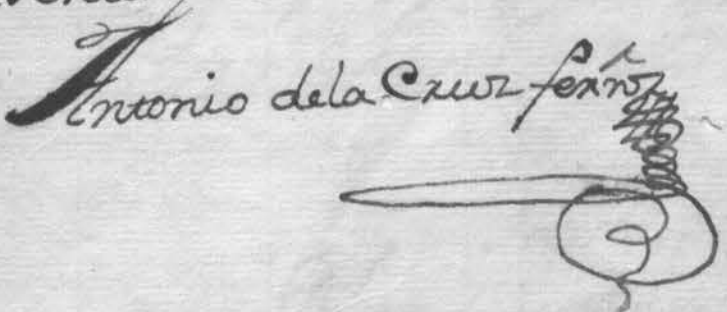 Antonio dela Cruz fern̂z